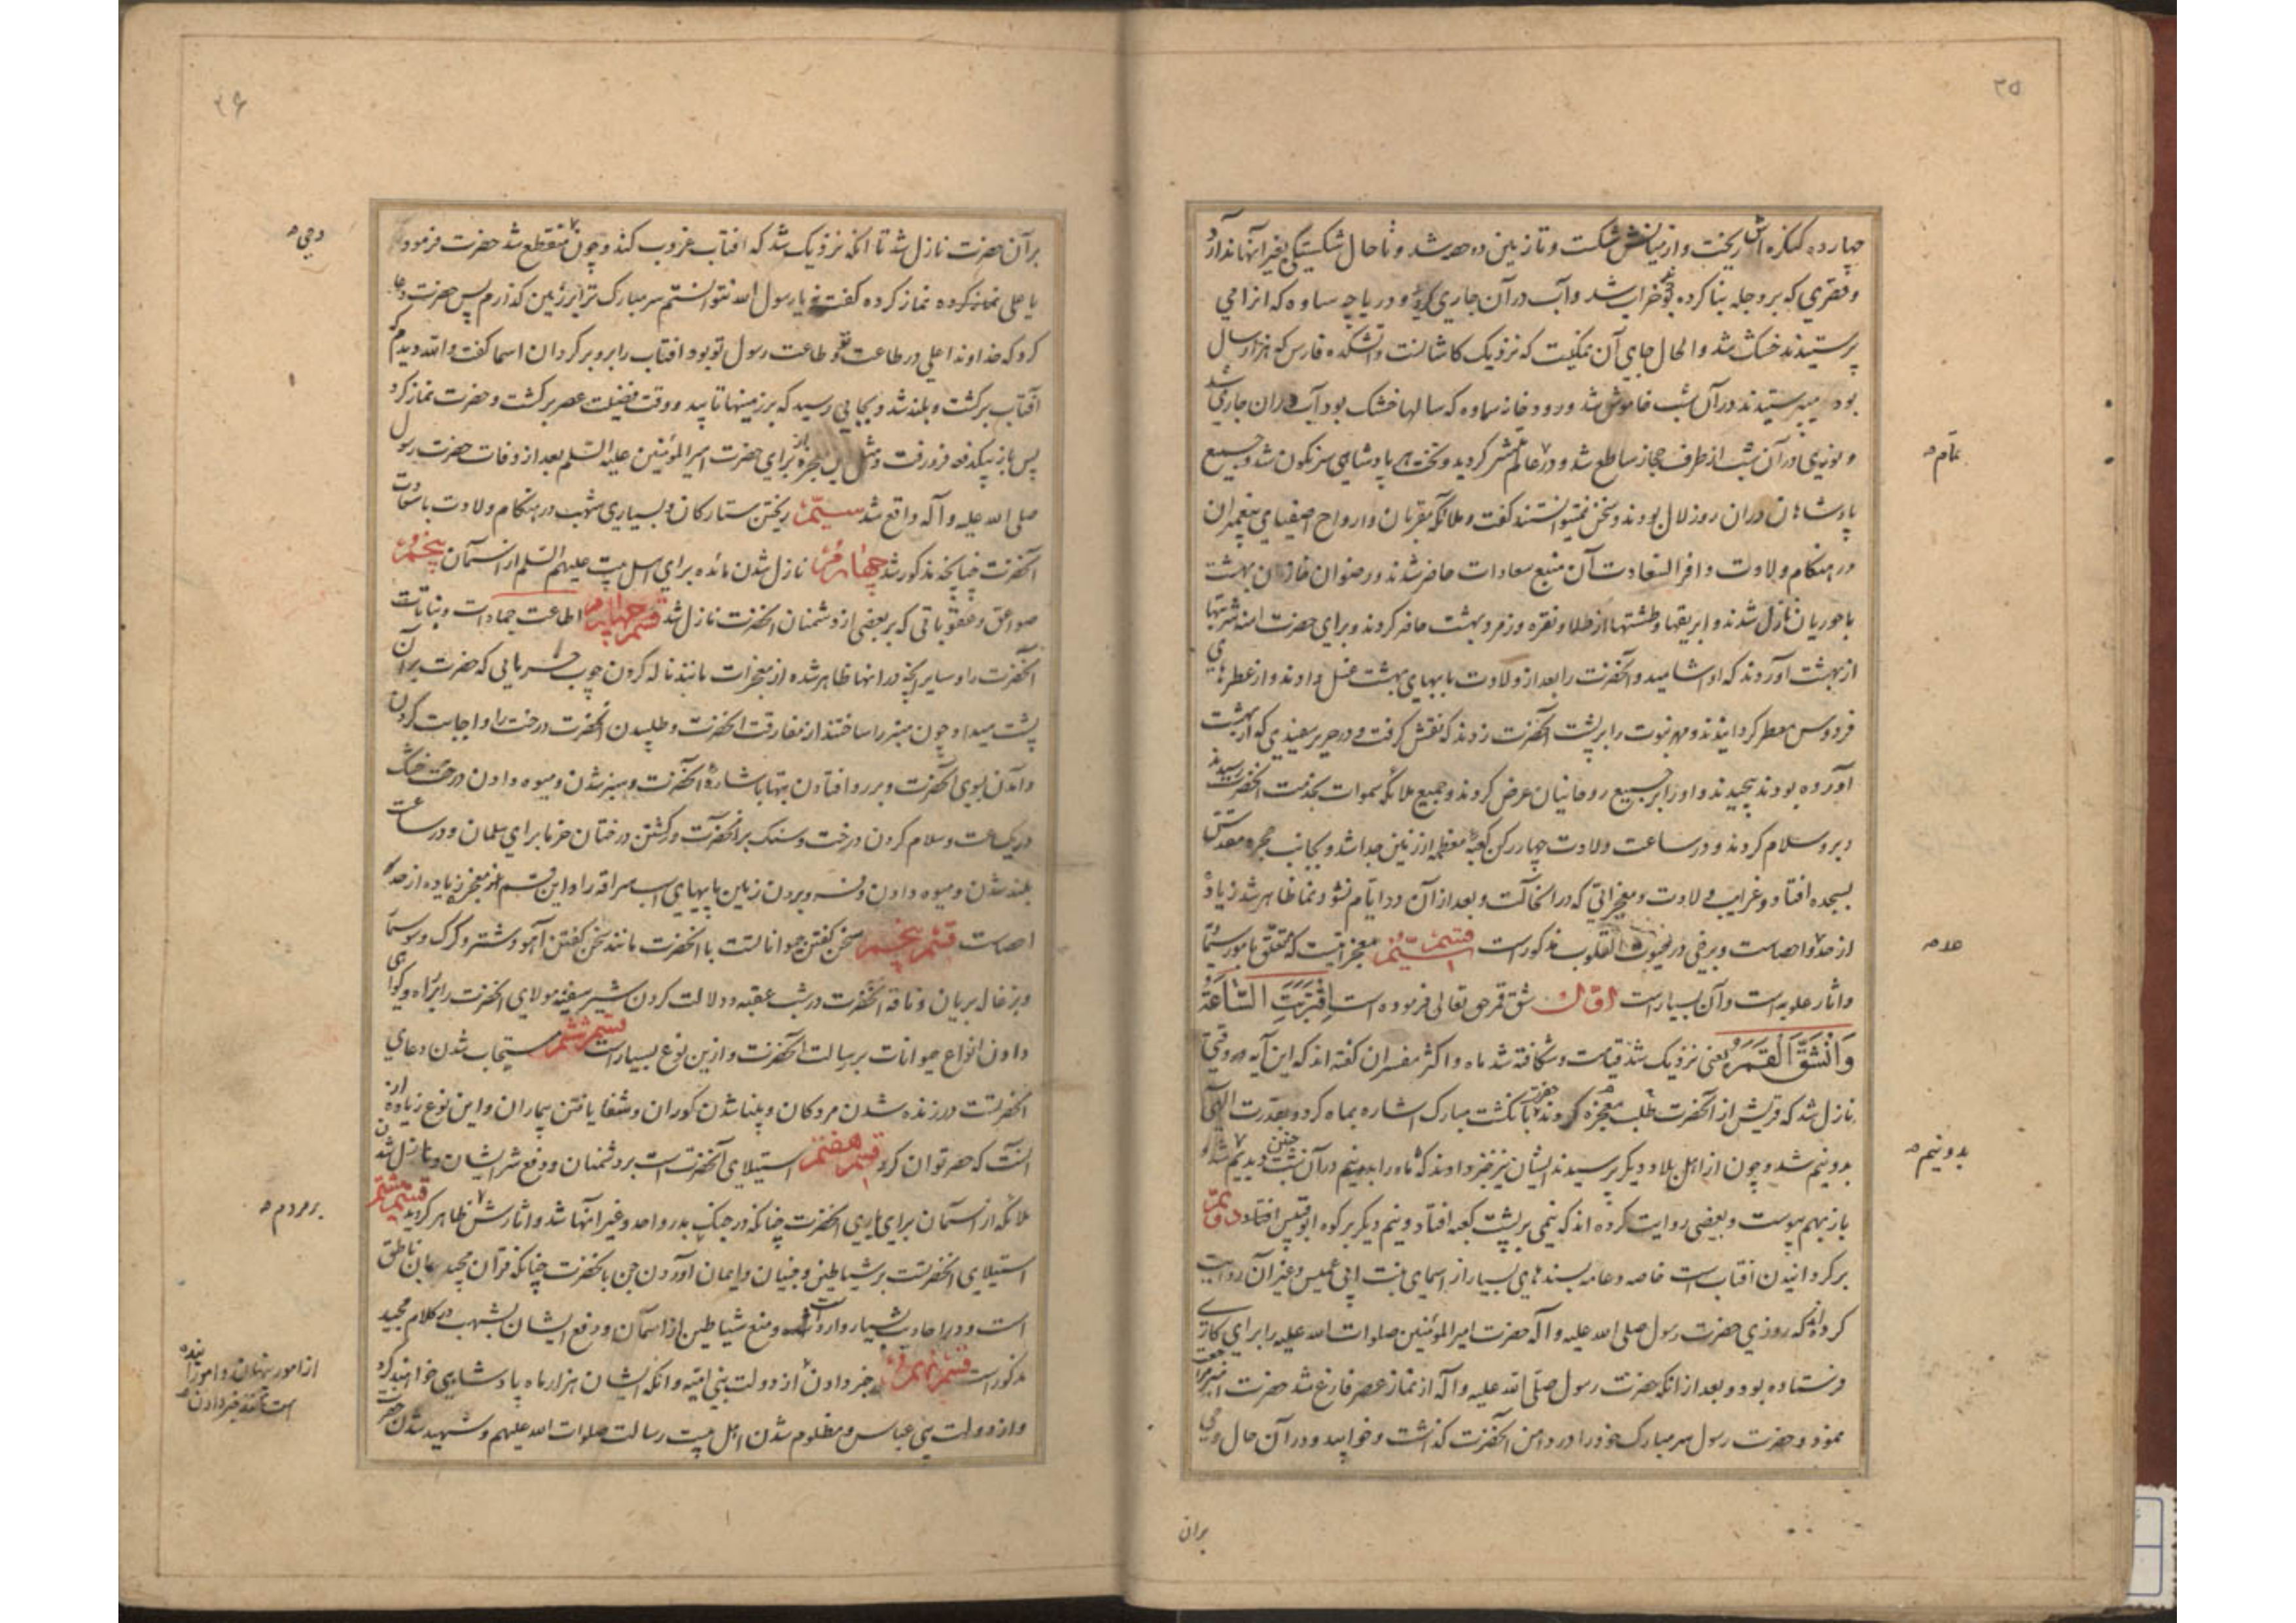 ۳۵
چهارده کنکره اش ریخت و از میانش شکست و تا زمین ده حصه شد و تا حال شکستیکی بغیر آنها ندارد
و قصری که بر دجله بنا کرده بود خراب شد و آب در آن جاری کردید و دریاچه ساوه که انرا می
پرستیدند خشک شد و الحال جای آن نمکیست که نزدیک کاشانست و آتشکده فارس که هزار سال
بود میپرستیدند در آن شب خاموش شد و رودخانه سماوه که سالها خشک بود آب در آن جاری شد
و نوری در آن شب از طرف حجاز ساطع شد و در عالم منتشر کردید و تخت هر پادشاهی سرنکون شد و جمیع
تمام
پادشاهان در آن روز لال بودند و سخن نمیتوانستند کفت و ملائکه مقربان و ارواح اصفیای پیغمبران
در هنکام ولادت وافر السعادت آن منبع سعادات حاضر شدند و رضوان خازن بهشت
با حوریان نازل شدند و ابریقها و طشتها از طلا و نقره و زمرد بهشت حاضر کردند و برای حضرت امنه شربتها
از بهشت آوردند که او اشامید و آنحضرت را بعد از ولادت بابهای بهشت غسل دادند و از عطرهای
فردوس معطر کردانیدند و مهر نبوت را بر پشت آنحضرت زدند که نقش کرفت و در حریر سفیدی که از بهشت
آورده بودند پیچیدند و او را بر جمیع روحانیان عرض کردند و جمیع ملائکه سموات بخدمت آنحضرت رسیدند
و برو سلام کردند و در ساعت ولادت چهار رکن کعبه معظمه از زمین جدا شد و بجانب حجره مقدسش
بسجده افتاد و غرایب ولادت و معجزاتی که در انحالت و بعد از آن در ایام نشو و نما ظاهر شد زیاده
از حد و احصاست و برخی در حیوت القلوب مذکور است قسم سیّم معجزاتیست که متعلق بامور سمائی
حد
و اثار علویه است و آن بسیار است اوّل شق قمر حق تعالی فرموده است اِقْتَرَبَتِ السَّاعَةُ
وَانْشَقَّ الْقَمَرُ یعنی نزدیک شد قیامت و شکافته شد ماه و اکثر مفسران کفته اند که این آیه وقتی
نازل شد که قریش از آنحضرت طلب معجزه کردند حضرت بانکشت مبارک اشاره بماه کرد و بقدرت الهی
بدو نیم شد و چون از اهل بلاد دیکر پرسیدند ایشان نیز خبر دادند که ماه را بدو نیم در آن شب چنین دیدیم
بدو نیم
باز بهم پیوست و بعضی روایت کرده اند که نیمی بر پشت کعبه افتاد و نیم دیکر بر کوه ابو قبیس افتاد دویّم
برکردانیدن افتاب است خاصه و عامه بسندهای بسیار از اسمای بنت ابی عمیس و غیر آن روایت
کرده اند که روزی حضرت رسول صلی الله علیه و آله حضرت امیر المومنین صلوات الله علیه را برای کاری
فرستاده بود و بعد از آنکه حضرت رسول صلی الله علیه و آله از نماز عصر فارغ شد حضرت امیر مراجعت
نمود و حضرت رسول سر مبارک خود را در دامن آنحضرت کذاشت و خوابید و در آن حال وحی
بران
۳۶
بر آن حضرت نازل شد تا انکه نزدیک شد که افتاب غروب کند و چون منقطع شد حضرت فرمود
وحی
یا علی نماز کرده کفت یا رسول الله نتوانستم سر مبارک ترا بر زمین کذارم پس حضرت دعا
کرد که خداوندا علی در طاعت تو و طاعت رسول تو بود افتاب را برو برکردان اسما کفت والله دیدم که
آفتاب برکشت و بلند شد و بجایی رسید که بر زمینها تابید و وقت فضیلت عصر برکشت و حضرت نماز کرد
پس باز بیکدفعه فرو رفت و مثل این معجزه باز برای حضرت امیر المومنین علیه السلم بعد از وفات حضرت رسول
صلی الله علیه و آله واقع شد سیّم ریختن ستارکان و بسیاری شهب در هنکام ولادت باسعادت
آنحضرت چنانچه مذکور شد چهارم نازل شدن مائده برای اهل بیت علیهم السلم از اسمان پنجم
صواعق و عقوباتی که بر بعضی از دشمنان آنحضرت نازل شد قسم چهارم اطاعت جمادات و نباتات
آنحضرت را و سایر آنچه در انها ظاهر شده از معجزات مانند ناله کردن چوب خرمایی که حضرت بر آن
پشت میداد چون منبر را ساختند از مفارقت آنحضرت و طلبیدن آنحضرت درخت را و اجابت کردن
و آمدن بسوی آنحضرت و بر رو افتادن بتها باشاره آنحضرت و سبز شدن و میوه دادن درخت خشک
در یک ساعت و سلام کردن درخت و سنک بر آنحضرت و کشتن درختان خرما برای سلمان و در ساعت
بلند شدن و میوه دادن و فرو بردن زمین پایهای اسب سراقه را و این قسم از معجزه زیاده از حد و
احصاست قسم پنجم سخن کفتن حیواناتست با آنحضرت مانند سخن کفتن آهو و شتر و کرک و سوسمار
و بزغاله بریان و ناقه آنحضرت در شب عقبه و دلالت کردن شیر سفینه مولای آنحضرت را براه و کواهی
دادن انواع حیوانات برسالت آنحضرت و از این نوع بسیار است قسم ششم مستجاب شدن دعای
آنحضرتست در زنده شدن مردکان و بینا شدن کوران و شفا یافتن بیماران و این نوع زیاده از
آنست که حصر توان کرد قسم هفتم استیلای آنحضرت است بر دشمنان و دفع شر ایشان و نازل شدن
ملائکه از اسمان برای یاری آنحضرت چنانکه در جنک بدر و احد و غیر آنها شد و اثارش ظاهر کردید قسم هشتم
بر مردم
استیلای آنحضرتست بر شیاطین و جنیان و ایمان آوردن جن بآنحضرت چنانکه قرآن مجید بان ناطق
است و در احادیث بسیار وارد است و منع شیاطین از اسمان و دفع ایشان بشهب در کلام مجید
مذکور است قسم نهم خبر دادن از دولت بنی امیه و آنکه ایشان هزار ماه پادشاهی خواهند کرد
از امور پنهان و امور آینده است مانند خبر دادن
و از دولت بنی عباس و مظلوم شدن اهل بیت رسالت صلوات الله علیهم و شهید شدن حضرت